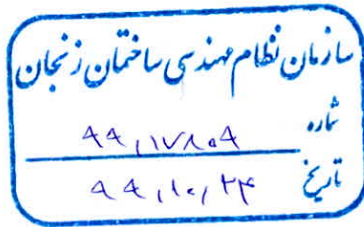 سازمان نظام مهندسی ساختمان زنجان
شماره ۹۹،۱۷۸۰۹
تاریخ ۹۹،۱۰،۲۴